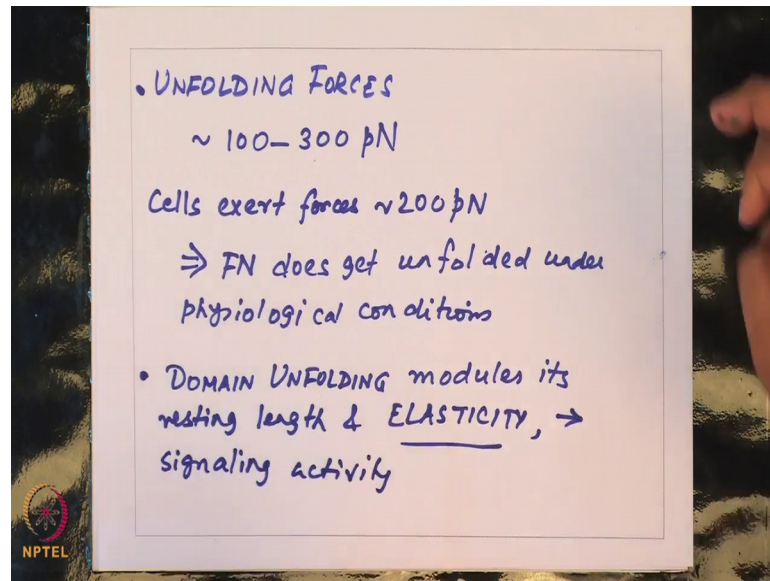 • UNFOLDING FORCES
~ 100-300 pN
Cells exert forces ~200pN
⇒ FN does get unfolded under
physiological conditions
• DOMAIN UNFOLDING modules its
resting length & ELASTICITY, →
signaling activity
NPTEL